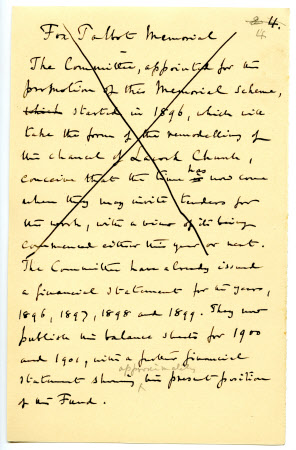 2 4.
4
Fox Talbot Memorial
The Committee, appointed for the
promotion of the Memorial scheme,
which started in 1896, which will
take the form of the remodelling of
the chancel of Lacock Church,
conceive that the time is has now come
when they may invite tenders for
the work, with a view of its being
commenced either this year or next.
The Committee have already issued
a financial statement for the years,
1896, 1897, 1898 and 1899. They now
publish the balance sheets for 1900
and 1901, with a further financial
approximately
statement showing the present position
of the Fund.